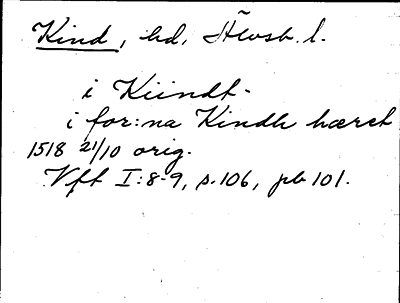 Kind, hd, Älvsb. l.
i Kiindt-
i for:na Kindh hæret
1518 21/10 orig.
Vft I:8-9, s. 106, pb 101.